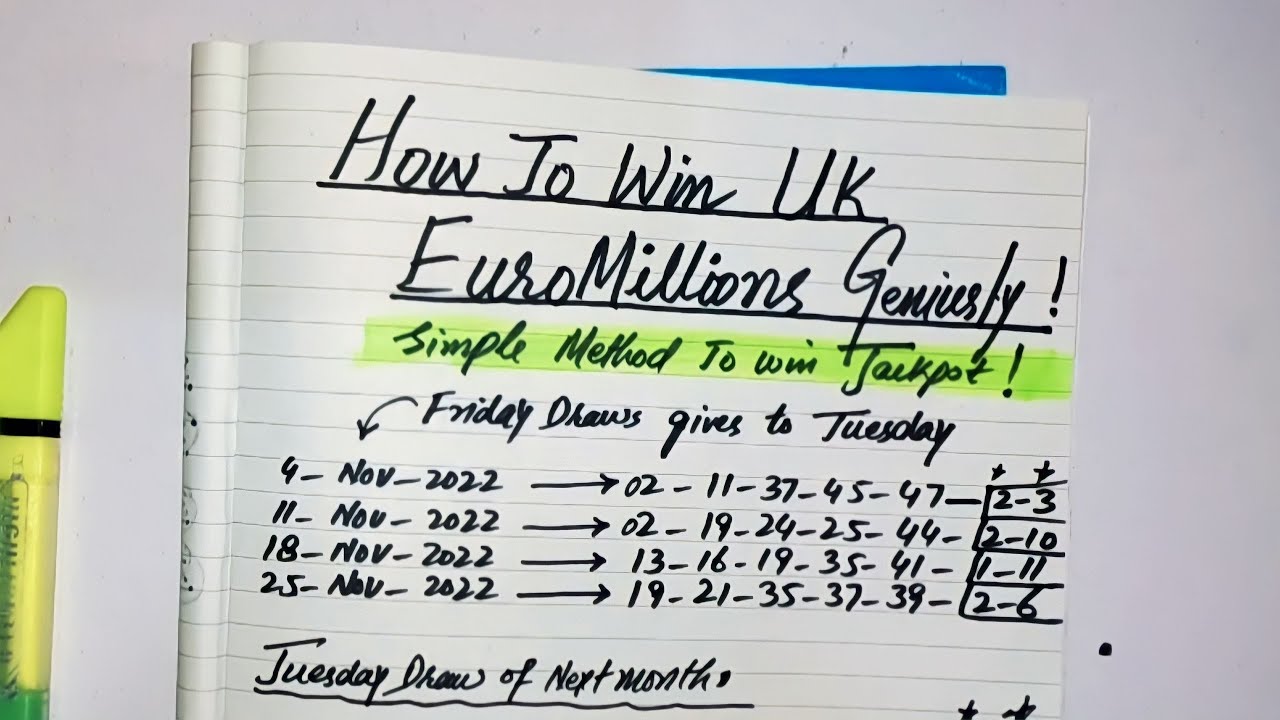 How To Win UK
EuroMillions Geniusly!
Simple Method To win Jackpot!
Friday Draws gives to Tuesday
4- Nov-2022 → 02-11-37-45-47-2-3
11- Nov-2022 → 02-19-24-25-44-2-10
18-Nov-2022 → 13-16-19-35-41-1-11
25-Nov-2022 → 19-21-35-37-39-2-6
Tuesday Draw of Next month.